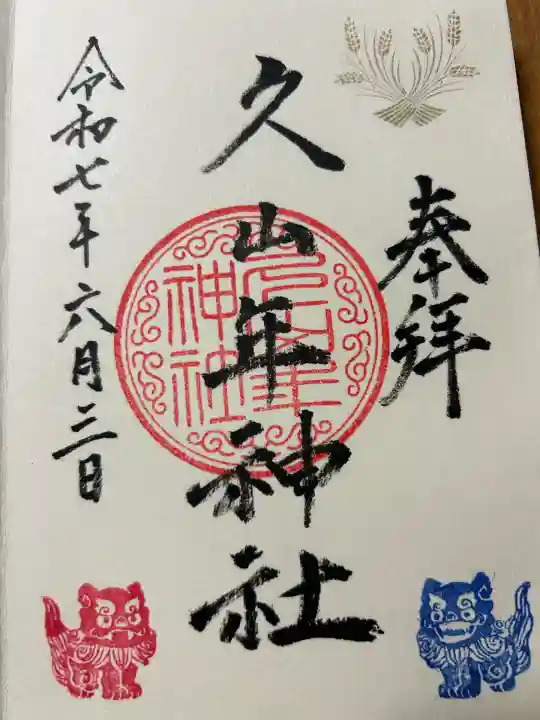 奉拝
久山年神社
久山年神社
令和七年六月三日